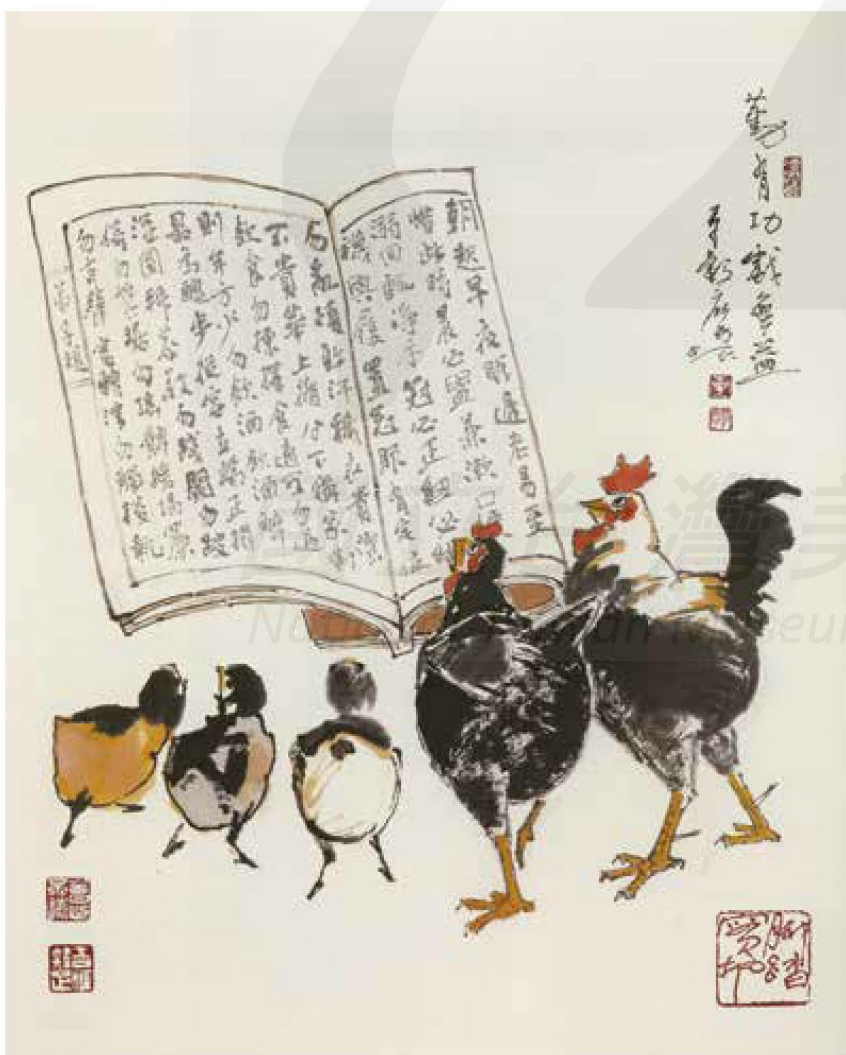 勤有功戲無益
朝起早夜眠遲老易至
惜此時晨必盥兼漱口
溺回輒淨手冠必正紐必
襪與履置冠服有定位
勿亂頓致汙穢衣貴潔
不貴華上循分下稱家
飲食勿揀擇食適可勿過
則年方少勿飲酒飲酒醉
最為醜步從容立端正揖
深圓拜恭敬勿踐閾勿跛
倚勿箕踞勿搖髀緩揭簾
勿有聲寬轉彎勿觸棱執
弟子規
腳踏實地